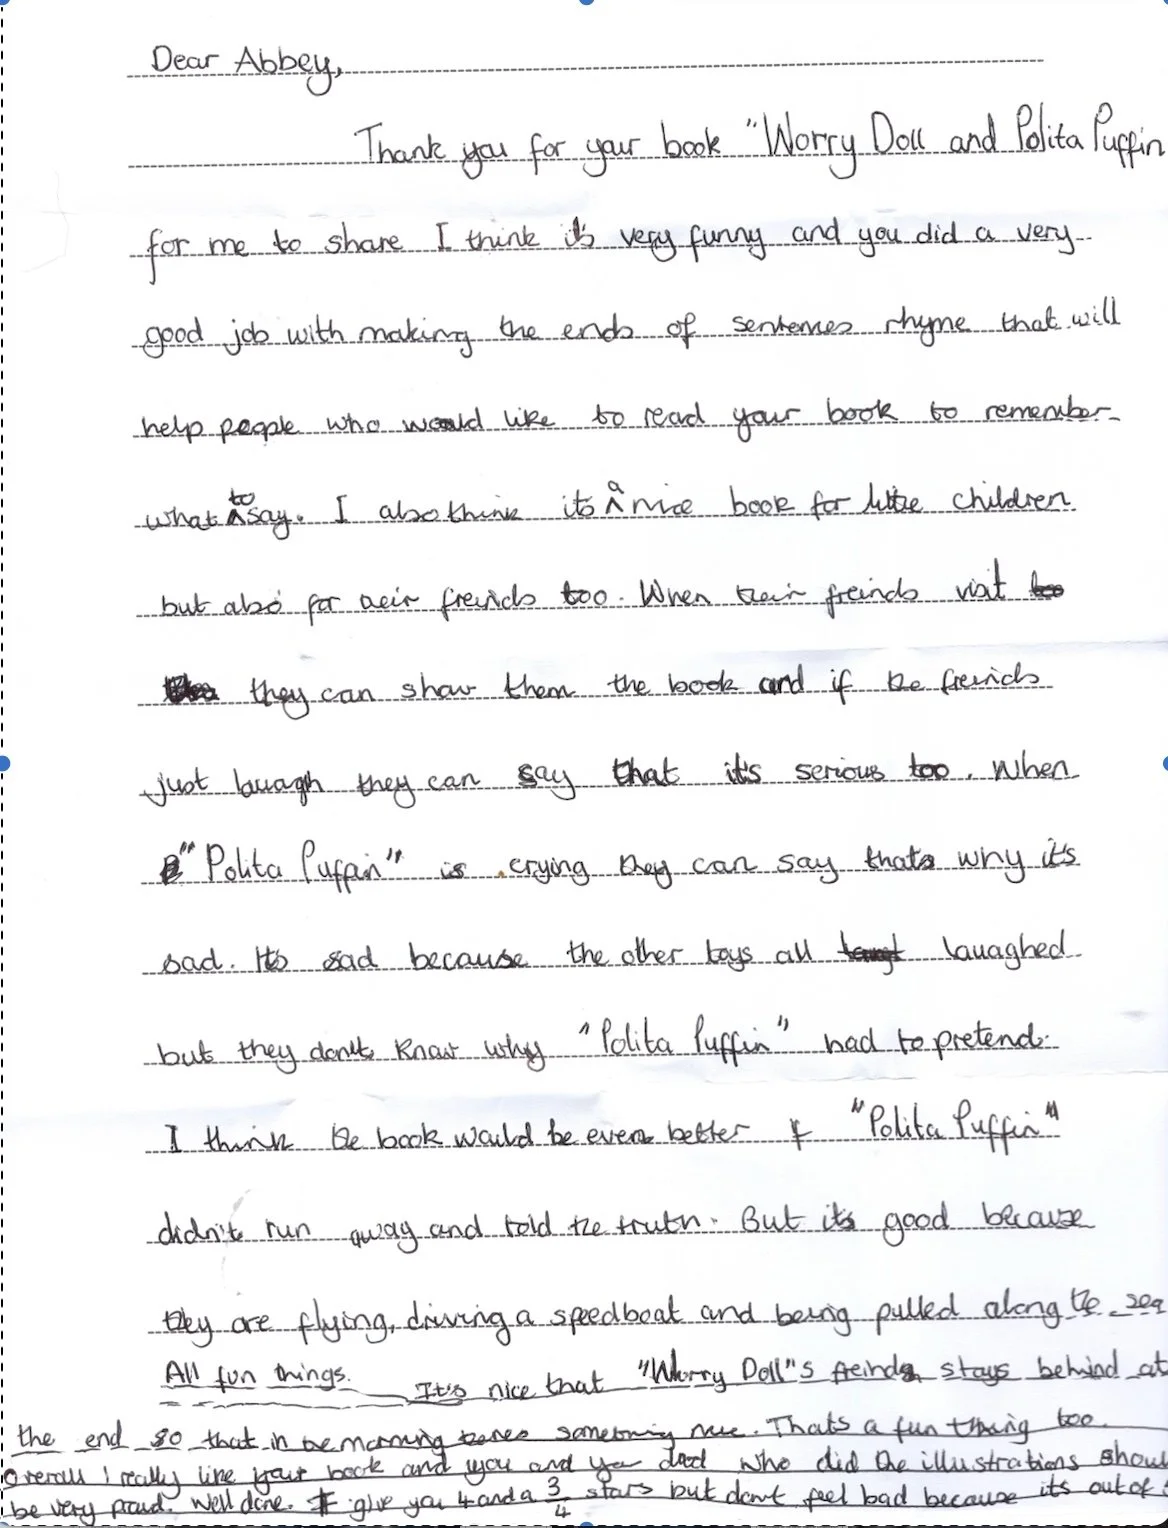 Dear Abbey,
Thank you for your book "Worry Doll and Polita Puffin
for me to share I think it's very funny and you did a very
good job with making the ends of sentences rhyme that will
help people who would like to read your book to remember
what to say. I also think its a nice book for little children
but also for their freinds too. When their freinds visit
they can show them the book and if the freinds
just lauagh they can say that it's serious too. When
"Polita Puffin" is crying they can say thats why it's
sad. It's sad because the other toys all lauaghed
but they don't know why "Polita Puffin" had to pretend.
I think the book would be even better if "Polita Puffin"
didn't run away and told the truth. But it's good because
they are flying, driving a speedboat and being pulled along the sea
All fun things. It's nice that "Worry Doll"s freind stays behind at
the end so that in the morning theres something new. Thats a fun thing too.
Overall I really like your book and you and your dad who did the illustrations shoul
be very proud. Well done. I give you 4 and a 3/4 stars but dont feel bad because its out of